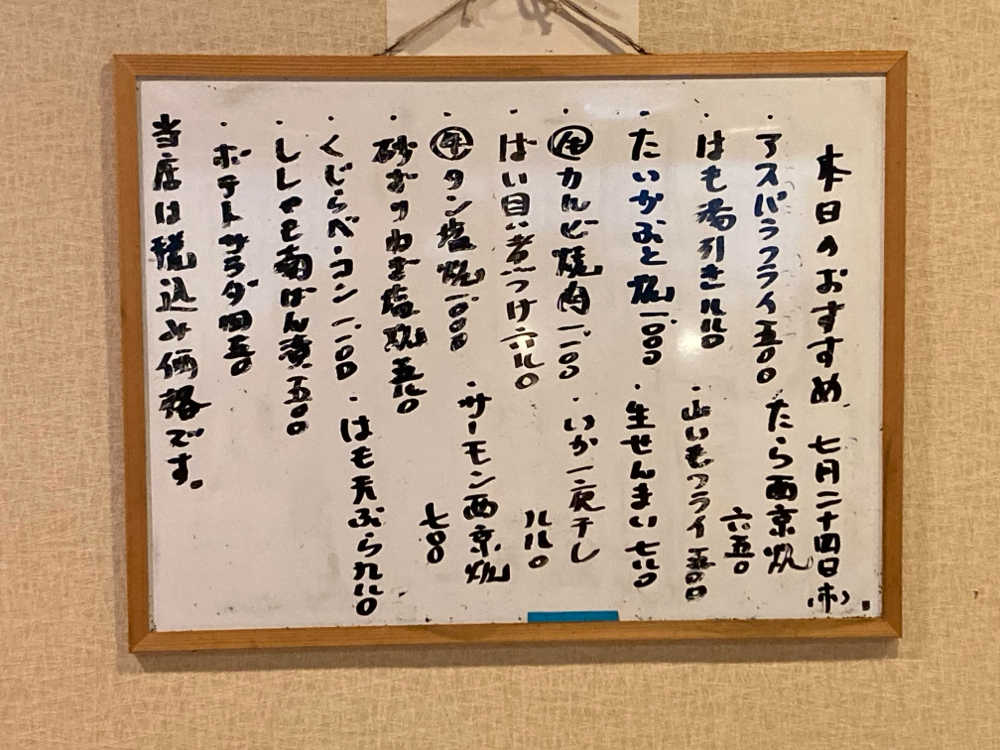 本日のおすすめ 七月二十四日(木)
・アスパラフライ 五〇〇
たら西京焼 六五〇
・はも湯引き 八八〇
・山いもフライ 五〇〇
・たいかぶと塩焼 一、〇〇〇
・生せんまい 七八〇
・㊗カルビ焼肉 一、一〇〇
・いか一夜干し 八八〇
・ばい貝煮つけ 六八〇
・タン塩焼 一、〇〇〇
・サーモン西京焼 七〇〇
・砂ずりねぎ塩焼 五八〇
・くじらベーコン 一、一〇〇
・はも天ぷら 九八〇
・ししゃも南ばん漬 五〇〇
・ポテトサラダ 四五〇
当店は税込み価格です。